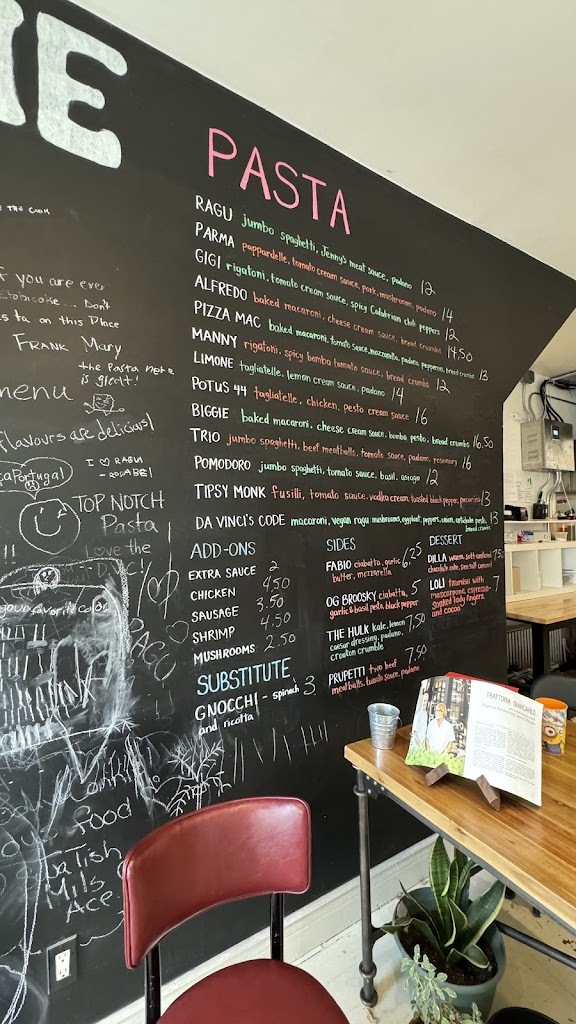 PASTA
RAGU jumbo spaghetti, Jenny's meat sauce, padano 12
PARMA pappardelle, tomato cream sauce, pork, mushrooms, padano 14
GIGI rigatoni, tomato cream sauce, spicy Calabrian chili peppers 12
ALFREDO baked macaroni, cheese cream sauce, bread crumbs 14.50
PIZZA MAC baked macaroni, tomato sauce, mozzarella, padano, pepperoni, bread crumbs 13
MANNY rigatoni, spicy bomba tomato sauce, bread crumbs 12
LIMONE tagliatelle, lemon cream sauce, padano 14
POTUS 44 tagliatelle, chicken, pesto cream sauce 16
BIGGIE baked macaroni, cheese cream sauce, bomba pesto, bread crumbs 16.50
TRIO jumbo spaghetti, beef meatballs, tomato sauce, padano, rosemary 16
POMODORO jumbo spaghetti, tomato sauce, basil, asiago 12
TIPSY MONK fusilli, tomato sauce, vodka cream, toasted black pepper, pecorino 13
DA VINCI'S CODE macaroni, vegan ragu mushrooms, eggplant, peppers, onion, artichoke, pesto, 13
bread crumbs
ADD-ONS
EXTRA SAUCE 2
CHICKEN 4.50
SAUSAGE 3.50
SHRIMP 4.50
MUSHROOMS 2.50
SUBSTITUTE
GNOCCHI - spinach 3
and ricotta
SIDES
FABIO ciabatta, garlic 6.25
butter, mozzarella
OG BROOSKY ciabatta, 5
garlic & basil pesto, black pepper
THE HULK kale, lemon 7.50
caesar dressing, padano,
crouton crumble
PRUPETTI two beef 7.50
meatballs, tomato sauce, padano
DESSERT
DILLA warm, salt-caramel 7.50
chocolate cake, sea salt caramel
LOLI tiramisu with 7
mascarpone, espresso-
soaked lady fingers,
and cocoa
E THE COOK
f you are ever
Etobicoke... Don't
sta on this Place
FRANK Mary
the Pasta here
is great!
menu
flavours are delicious!
Portugal
I ♡ RAGU
- ROSABEL
TOP NOTCH
Pasta
I love the
your favorite color
RAGU
Food
Mils
Ace
TRATTORIA GIANCARLO